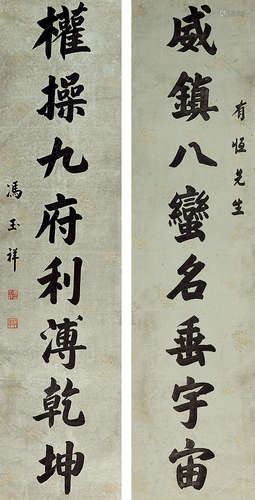 有恒先生
威鎮八蠻名垂宇宙
權操九府利溥乾坤
馮玉祥